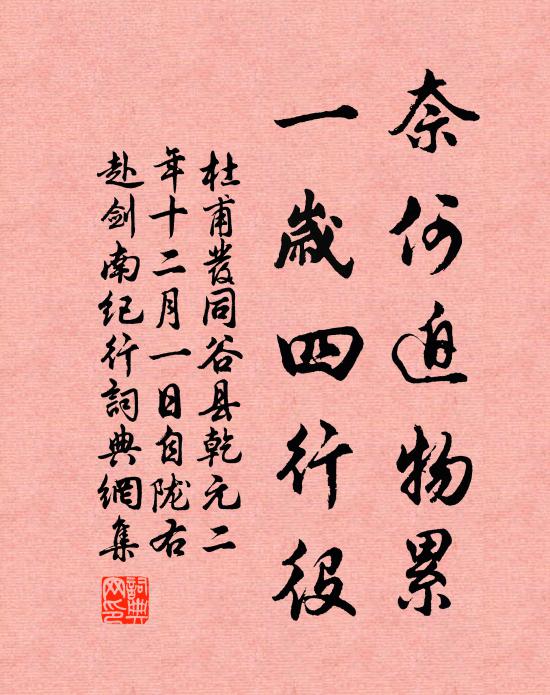 奈何迫物累
一歲四行役
杜甫發同谷县乾元二
年十二月一日自陇右
赴剑南纪行詞典網集
詞典网印